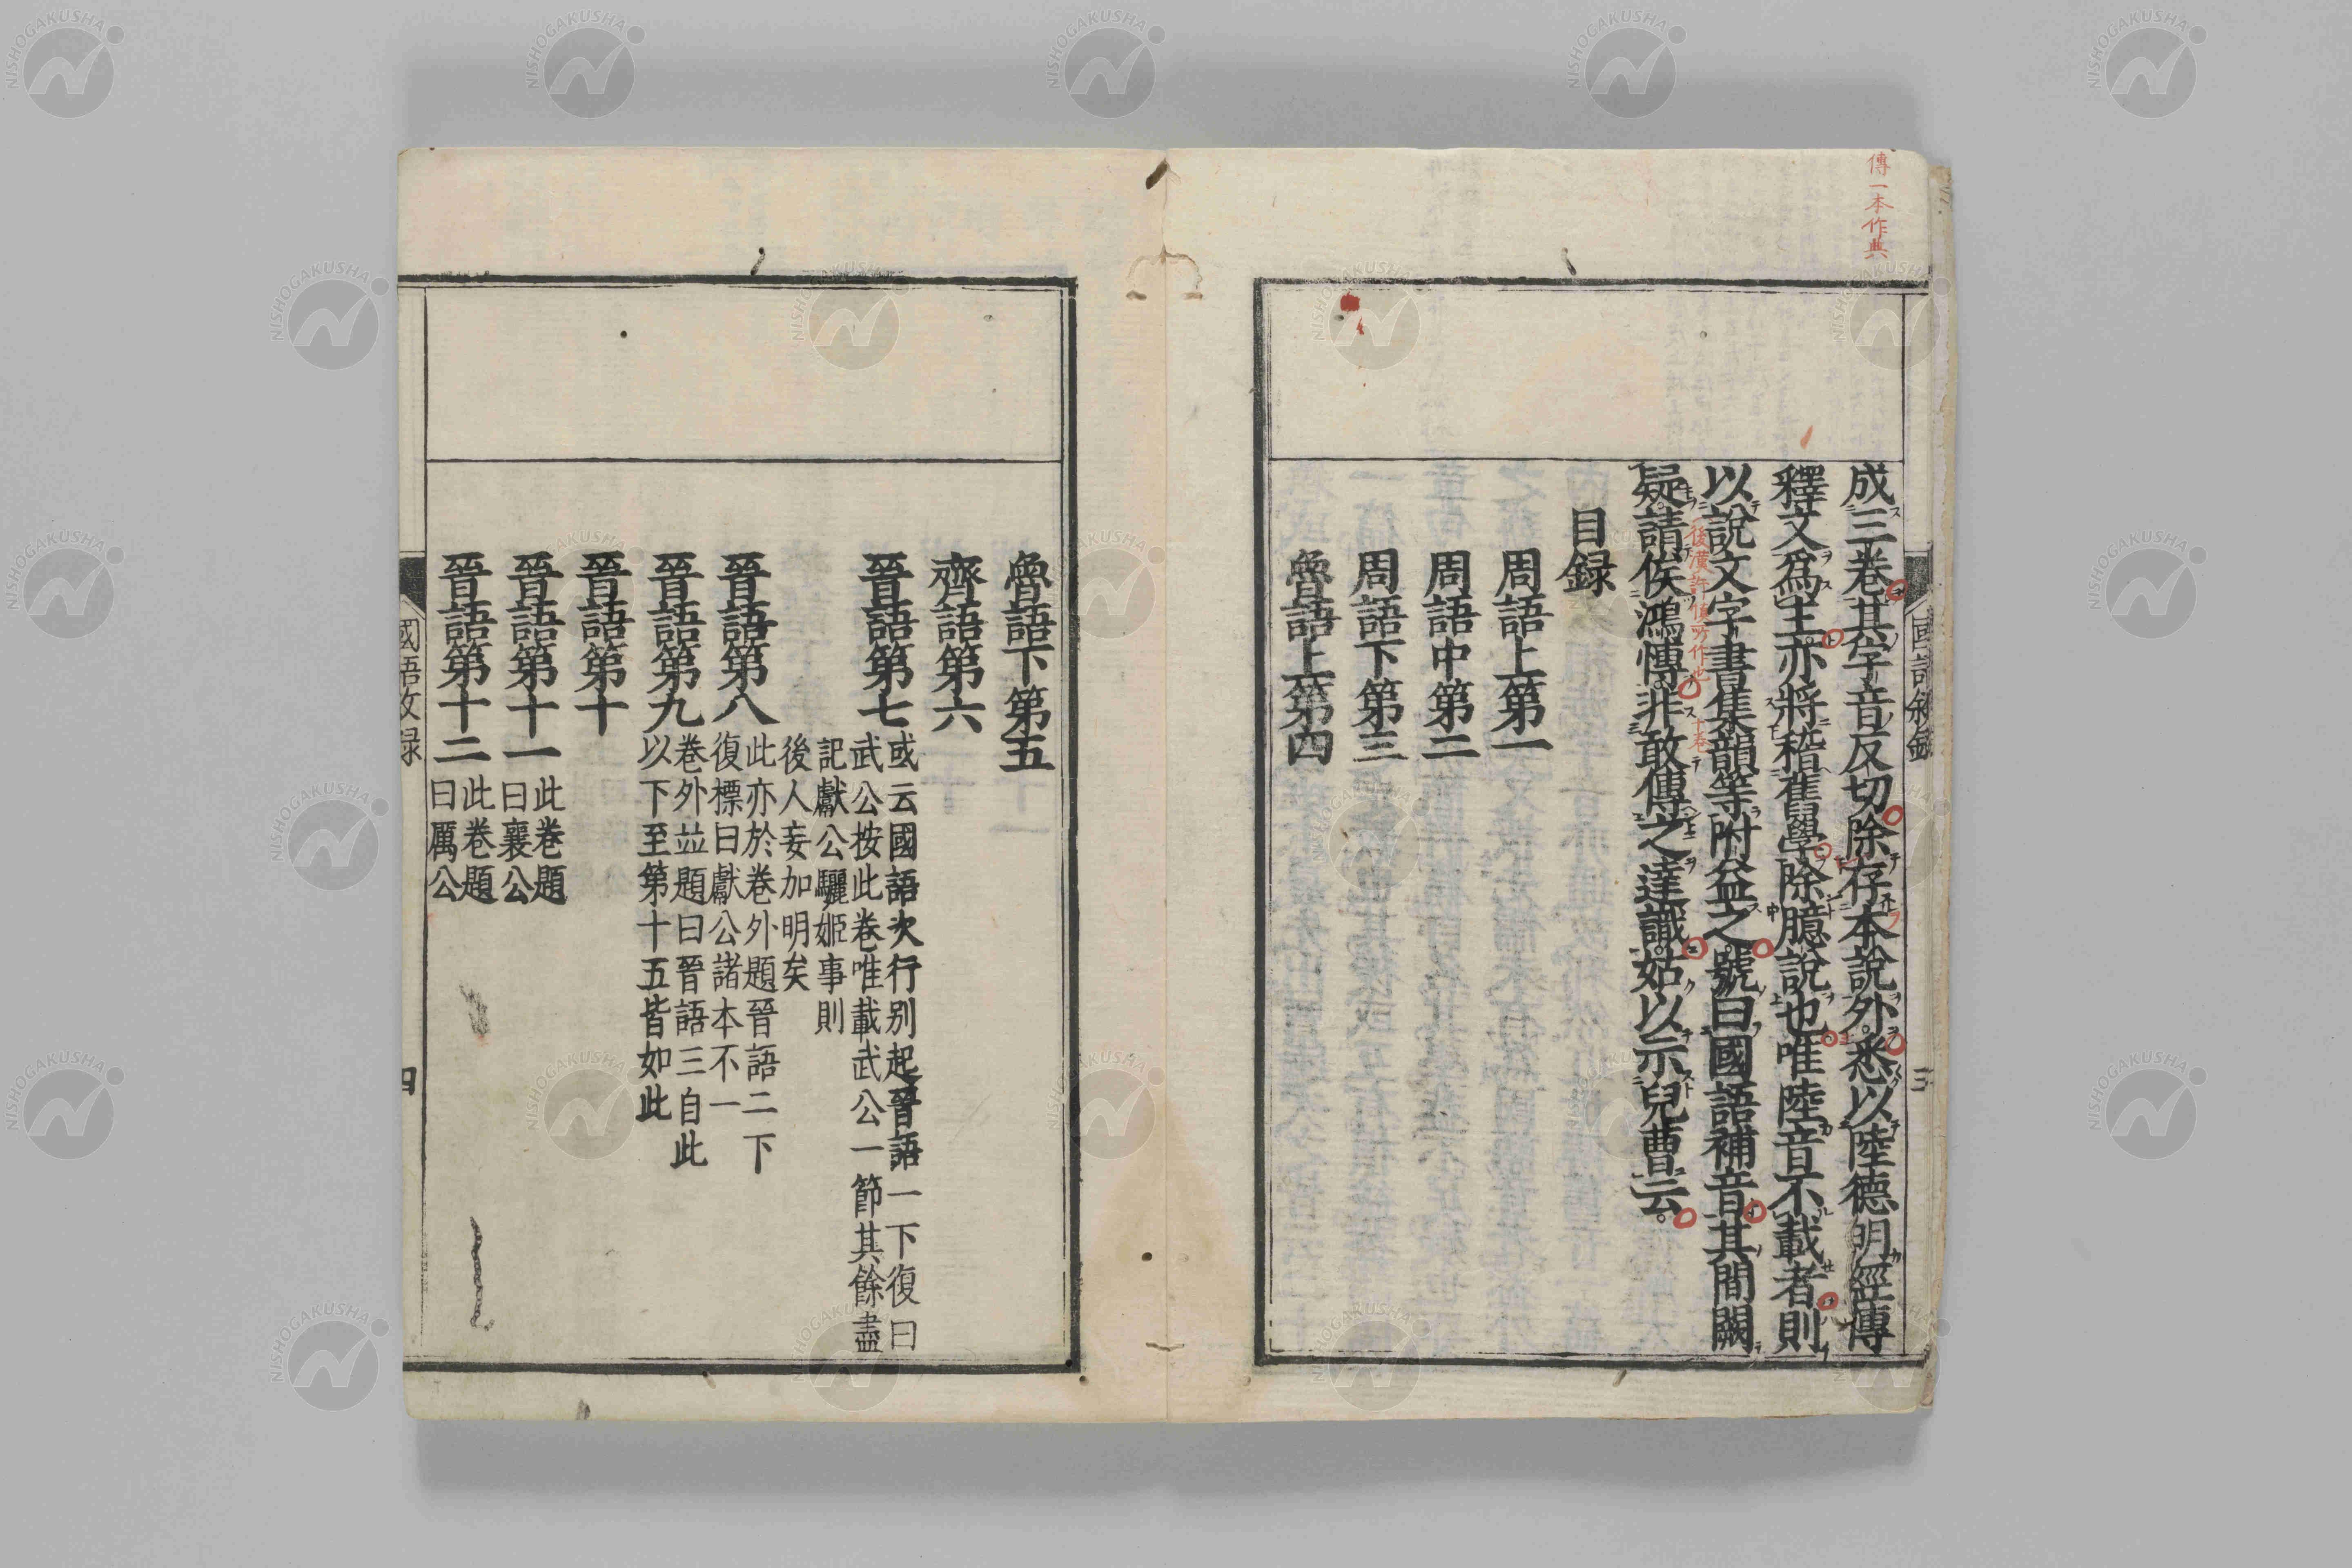 傳一本作典
成三卷其字音反切除存本說外悉以陸德明經傳
釋文爲主亦將稽舊學除臆說也唯陸音不載者則
以說文字書集韻等附益之號曰國語補音其間闕
後漢許愼所作也
十卷
疑請俟鴻愽非敢傳之達識姑以示兒曹云
目録
周語上第一
周語中第二
周語下第三
魯語上第四
國語敘錄
三
魯語下第五
齊語第六
晉語第七
或云國語次行别起晉語一下復曰
武公按此卷唯載武公一節其餘盡
記獻公驪姬事則
後人妄加明矣
晉語第八
此亦於卷外題晉語二下
復標曰獻公諸本不一
晉語第九
卷外並題曰晉語三自此
以下至第十五皆如此
晉語第十
晉語第十一
此卷題
曰襄公
晉語第十二
此卷題
曰厲公
四
NISHOGAKUSHA